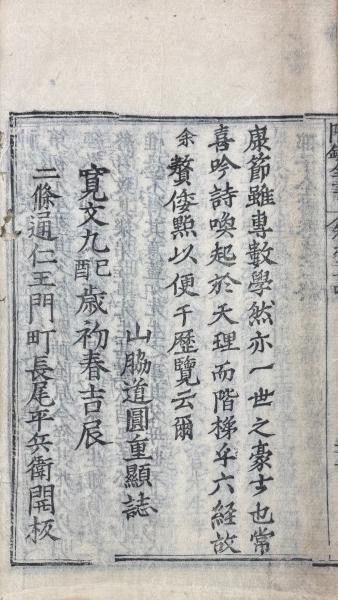 康節雖專數學然亦一世之豪士也常
喜吟詩喚起於天理而階梯乎六經故
余贅倭點以便于歷覽云爾
山脇道圓重顯誌
寬文九己酉歲初春吉辰
二條通仁王門町長尾平兵衛開板